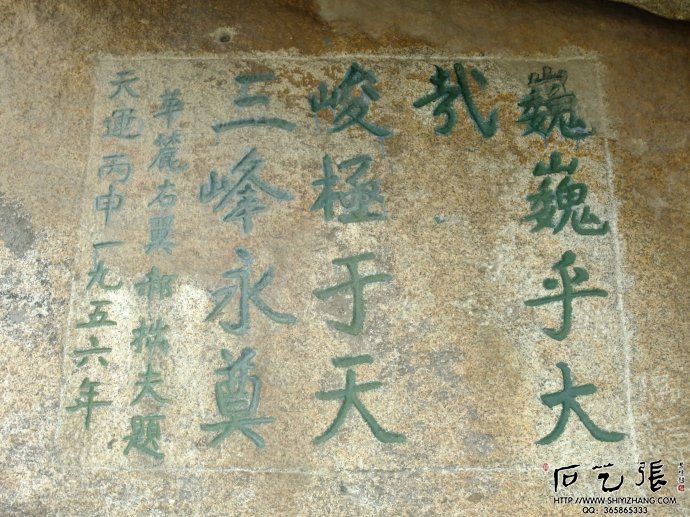 巍巍乎大
哉
峻極于天
三峰永奠
華麓右翼 郁攸夫題
天運丙申一九五六年
石艺張
HTTP://WWW.SHIYIZHANG.COM
QQ: 365865333